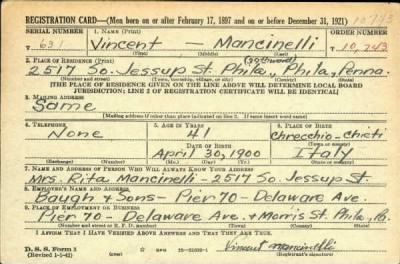 REGISTRATION CARD—(Men born on or after February 17, 1897 and on or before December 31, 1921)
SERIAL NUMBER 1. NAME (Print) ORDER NUMBER
631 Vincent — Mancinelli T10,243
(First) (Middle) (Last)
2. PLACE OF RESIDENCE (Print)
2517 So. Jessup St. Phila., Phila, Penna.
(Number and street) (Town, township, village, or city) (County) (State)
[THE PLACE OF RESIDENCE GIVEN ON THE LINE ABOVE WILL DETERMINE LOCAL BOARD
JURISDICTION; LINE 2 OF REGISTRATION CERTIFICATE WILL BE IDENTICAL]
3. MAILING ADDRESS
Same
[Mailing address if other than place indicated on line 2. If same insert word same]
4. TELEPHONE 5. AGE IN YEARS 6. PLACE OF BIRTH
None 41 Chrecchio-Chieti
DATE OF BIRTH (Town or county)
April 30, 1900 Italy
(Exchange) (Number) (Mo.) (Day) (Yr.) (State or country)
7. NAME AND ADDRESS OF PERSON WHO WILL ALWAYS KNOW YOUR ADDRESS
Mrs. Rita Mancinelli-2517 So. Jessup St.
8. EMPLOYER'S NAME AND ADDRESS
Baugh & Sons-Pier 70-Delaware Ave.
9. PLACE OF EMPLOYMENT OR BUSINESS
Pier 70-Delaware Ave. & Morris St. Phila, Pa.
(Number and street or R. F. D. number) (Town) (County) (State)
I AFFIRM THAT I HAVE VERIFIED ABOVE ANSWERS AND THAT THEY ARE TRUE.
D. S. S. Form 1
(Revised 1-1-42) Vincent Mancinelli
(Registrant's signature)